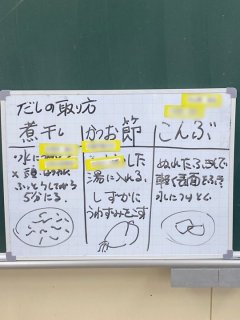 だしの取り方
煮干し
水に
×頭
ふっとうしてから
5分にる。
かつお節
した
湯に入れる。
しずかに
うわずみをこす
こんぶ
ぬれたふきんで
軽く表面をふき
水につけとく